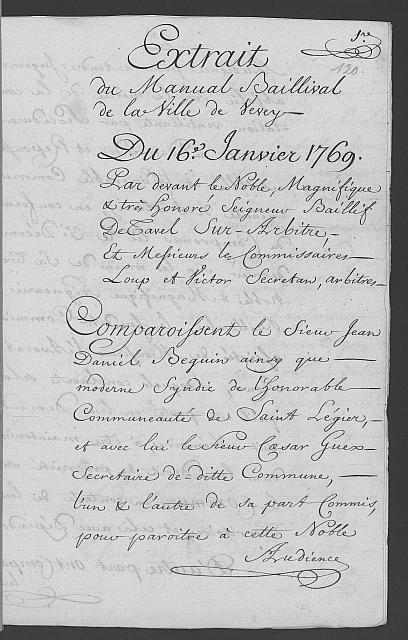 1re
120.
Extrait
du Manual Baillival
de la Ville de Vevey
Du 16e. Janvier 1769.
Par devant le Noble, Magnifique
& très honoré Seigneur Baillif
De Tavel Sur-Arbitre,
Et Messieurs les Commissaires
Loup et Victor Secretan, arbitres
Comparoissent le Sieur Jean
Daniel Beguin ainsy que
moderne Syndic de l'Honorable
Communeauté de Saint Legier,
et avec lui le Sieur Cæsar Guex
Secretaire de-ditte Commune,
l'un & l'autre de sa part Commis,
pour paroitre à cette Noble
Audience